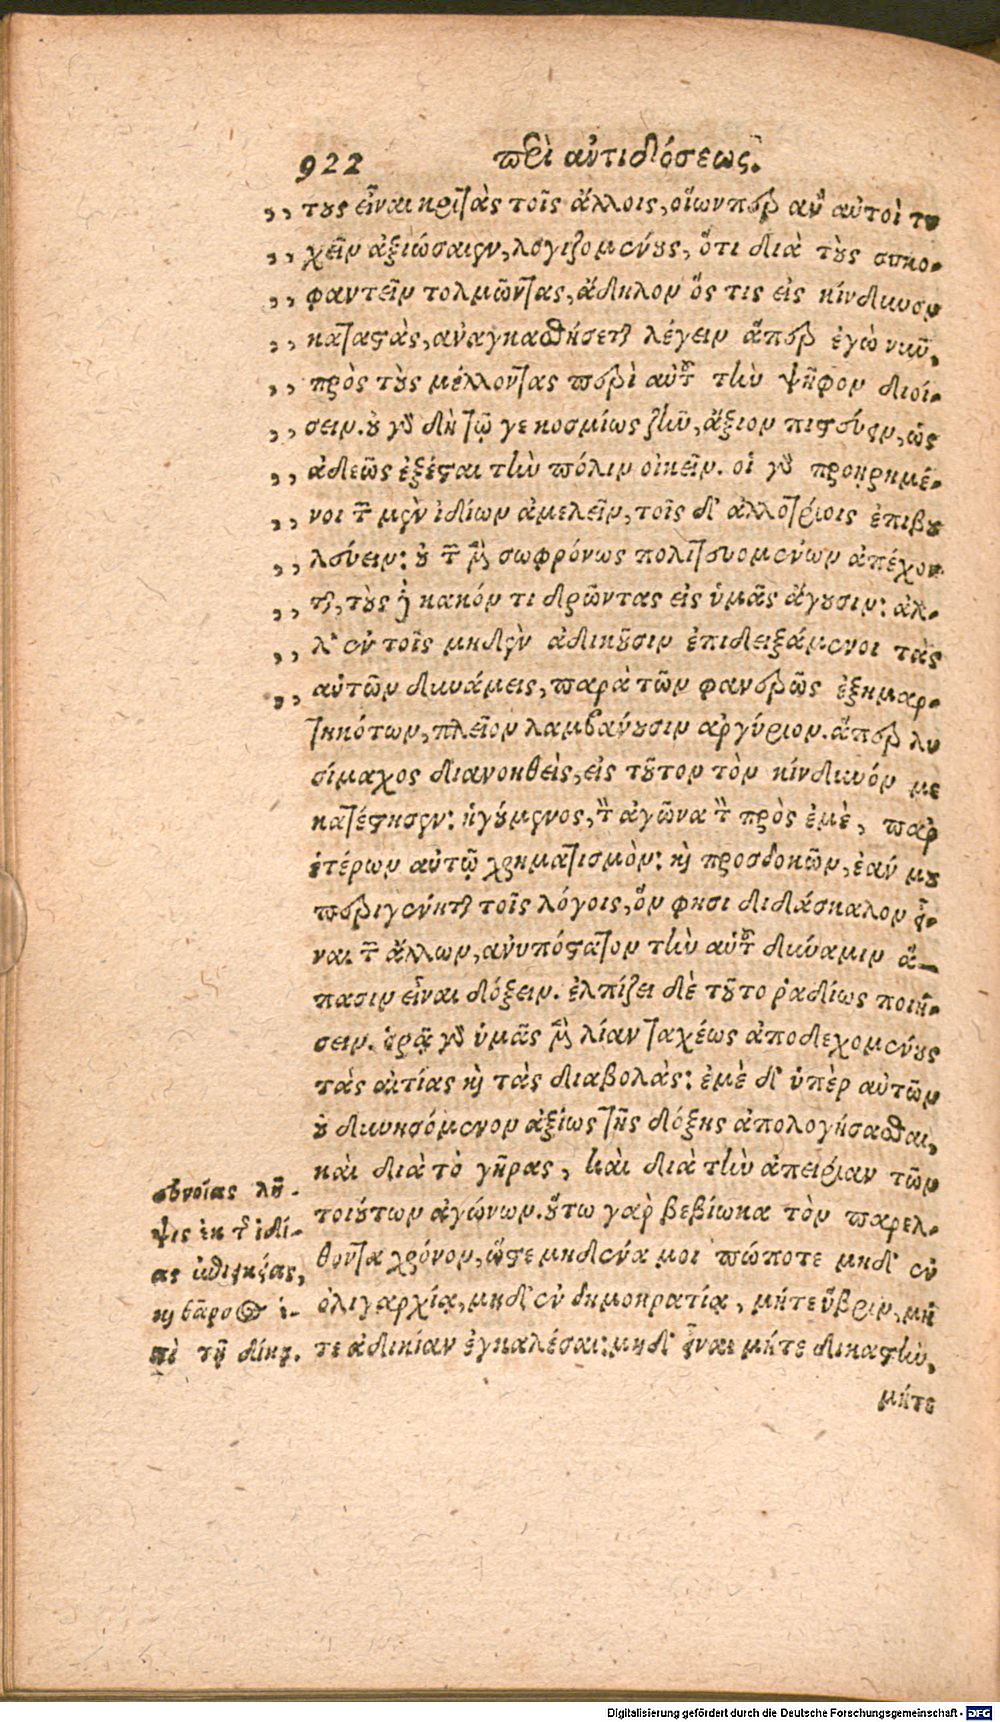 922 περὶ ἀντιδόσεως.
,, τους εἶναι κριτὰς τοῖς ἄλλοις, οἵων περ ἂν αὐτοὶ τυ
,, χεῖν ἀξιώσαιεν, λογιζομένους, ὅτι διὰ τοὺς συκο-
,, φαντεῖν τολμῶντας, ἄδηλον ὅς τις εἰς κίνδυνον
,, καταστὰς, ἀναγκασθήσεται λέγειν ἅπερ ἐγὼ νῦν,
,, πρὸς τοὺς μέλλοντας περὶ αὑτοῦ τὴν ψῆφον διοί-
,, σειν. οὐ γὰρ δὴ τῷ γε κοσμίως ζῆν, ἄξιον πιστεύειν, ὡς
,, ἀδεῶς ἐξέσται τὴν πόλιν οἰκεῖν. οἱ γὰρ προῃρημέ-
,, νοι τῶν μὲν ἰδίων ἀμελεῖν, τοῖς δ' ἀλλοτρίοις ἐπιβου
,, λεύειν: οὐ τῶν μὲν σωφρόνως πολιτευομένων ἀπέχον
,, ται, τοὺς δὲ κακόν τι δρῶντας εἰς ὑμᾶς ἄγουσιν: ἀλ-
,, λ' ἐν τοῖς μηδὲν ἀδικοῦσιν ἐπιδειξάμενοι τὰς
,, αὑτῶν δυνάμεις, παρὰ τῶν φανερῶς ἐξημαρ-
τηκότων, πλεῖον λαμβάνουσιν ἀργύριον. ἅπερ λυ
σίμαχος διανοηθεὶς, εἰς τοῦτον τὸν κίνδυνόν με
κατέστησεν: ἡγούμενος, τὸν ἀγῶνα τὸν πρὸς ἐμὲ, παρ'
ἑτέρων αὐτῷ χρηματισμὸν: καὶ προσδοκῶν, ἐάν μου
περιγένηται τοῖς λόγοις, ὅν φησι διδάσκαλον εἶ-
ναι τῶν ἄλλων, ἀνυπόστατον τὴν αὑτοῦ δύναμιν ἅ-
πασιν εἶναι δόξειν. ἐλπίζει δὲ τοῦτο ῥαδίως ποιή-
σειν. ὁρᾷ γὰρ ὑμᾶς μὲν λίαν ταχέως ἀποδεχομένους
τὰς αἰτίας καὶ τὰς διαβολὰς: ἐμὲ δ' ὑπὲρ αὐτῶν
οὐ δυνησόμενον ἀξίως τῆς δόξης ἀπολογήσασθαι,
καὶ διὰ τὸ γῆρας, καὶ διὰ τὴν ἀπειρίαν τῶν
τοιούτων ἀγώνων. οὕτω γὰρ βεβίωκα τὸν παρελ-
θόντα χρόνον, ὥστε μηδένα μοι πώποτε μηδ' ἐν
ὀλιγαρχίᾳ, μηδ' ἐν δημοκρατίᾳ, μήτε ὕβριν, μή
τε ἀδικίαν ἐγκαλέσαι: μηδ' εἶναι μήτε δικαστὴν,
μήτε
εὐνοίας λῆ-
ψις ἐκ τῆς ἰδί-
ας
καὶ βάρος ἐ-
πὶ τῇ δίκῃ.
Digitalisierung gefördert durch die Deutsche Forschungsgemeinschaft - DFG